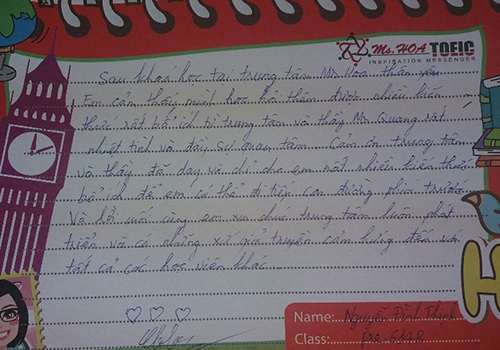 Ms. HOA TOEIC
INSPIRATION MESSENGER
Sau khoá học tại trung tâm Ms Hoa thân yêu
Em cảm thấy mình học hỏi thêm được nhiều kiến
thức rất bổ ích từ trung tâm và thầy Mr Quang rất
nhiệt tình và đầy sự quan tâm. Cảm ơn trung tâm
và thầy đã dạy và chỉ cho em rất nhiều kiến thức
bổ ích để em có thể đi tiếp con đường phía trước
Và lời cuối cùng em xin chúc trung tâm luôn phát
triển và có những sứ giả truyền cảm hứng đến với
tất cả các học viên khác
Name: Nguyễn Đình
Class: Pre